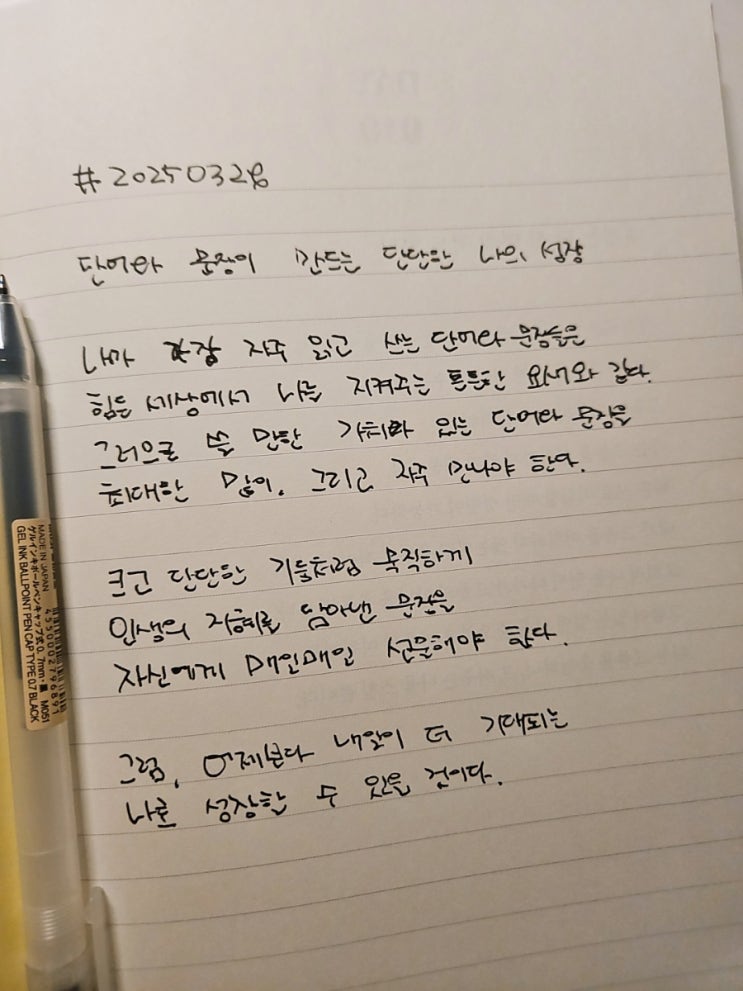 #20250328
단어와 문장이 만드는 단단한 나의 성장
내가 가장 자주 읽고 쓰는 단어와 문장들은
험한 세상에서 나를 지켜주는 튼튼한 요새와 같다.
그러므로 쓸 만한 가치가 있는 단어와 문장을
최대한 많이. 그리고 자주 만나야 한다.
크고 단단한 기둥처럼 묵직하게
인생의 지혜를 담아낸 문장을
자신에게 매일매일 선물해야 한다.
그럼, 어제보다 내일이 더 기대되는
나로 성장할 수 있을 것이다.
MADE IN JAPAN
ゲルインキボールペンキャップ式0.7mm・黒 MO51
GEL INK BALLPOINT PEN CAP TYPE 0.7 BLACK
4550002796891